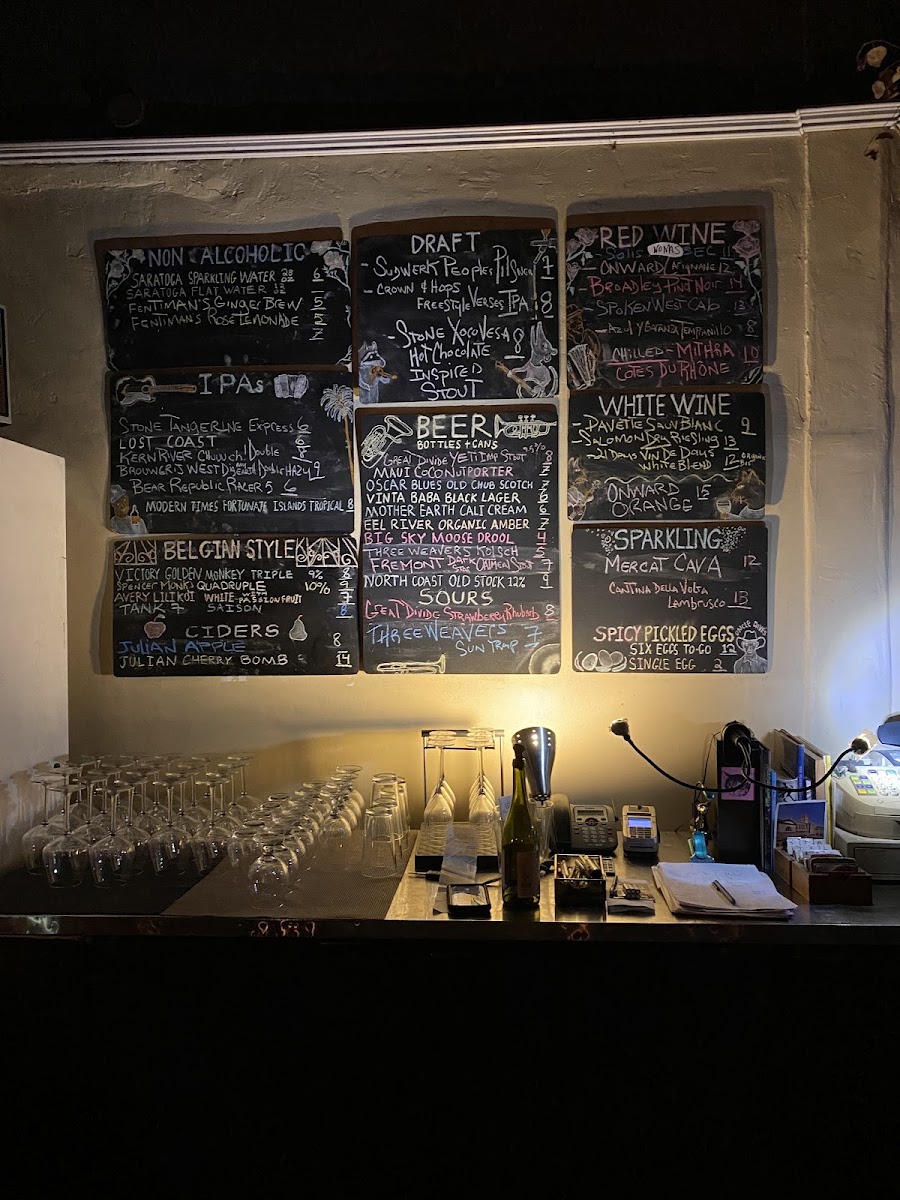 NON ALCOHOLIC
SARATOGA SPARKLING WATER 28 OZ 6
SARATOGA FLAT WATER
FENTIMAN'S GINGER BREW 5
FENTIMANS ROSE LEMONADE
IPAs
STONE TANGERINE EXPRESS 6
LOST COAST
KERN RIVER DOUBLE 8
BROUWERIJ WEST DOUBLE HAZY 9
BEAR REPUBLIC RACER 5 6
MODERN TIMES FORTUNATE ISLANDS TROPICAL 8
BELGIAN STYLE
VICTORY GOLDEN MONKEY TRIPLE 9% 8
SPENCER MONKS QUADRUPLE 10% 9
AVERY LILIKOI WHITE PASSION FRUIT 7
TANK 7 SAISON 8
CIDERS
JULIAN APPLE 8
JULIAN CHERRY BOMB 14
DRAFT
- SUDWERK PEOPLES PILSNER 7
- CROWN & HOPS
FREESTYLE VERSES IPA 8
- STONE XOCOVEZA 8
HOT CHOCOLATE
INSPIRED
STOUT
BEER
BOTTLES + CANS
GREAT DIVIDE YETI IMP STOUT 9.5% 8
MAUI COCONUT PORTER 7
OSCAR BLUES OLD CHUB SCOTCH 7
VINTA BABA BLACK LAGER 6
MOTHER EARTH CALI CREAM 6
EEL RIVER ORGANIC AMBER 7
BIG SKY MOOSE DROOL 4
THREE WEAVERS KOLSCH 5
FREMONT DARK STAR OATMEAL STOUT 7
NORTH COAST OLD STOCK 12% 9
SOURS
GREAT DIVIDE STRAWBERRY RHUBARB 8
THREE WEAVERS 7
SUN TRAP
RED WINE
SOLIS NONAS SEC 11
- ONWARD CARIGNANE 12
- BROADLEY PINOT NOIR 14
SPOKEN WEST CAB 13
- AZUL Y GARANZA TEMPRANILLO 8
CHILLED - MITHRA 10
COTES DU RHÔNE
WHITE WINE
- PAVETTE SAUV BLANC 9
- SALOMON DRY RIESLING 13
- 21 DAYS VIN DE DAYS 12 ORGANIC
WHITE BLEND
ONWARD 15
ORANGE
SPARKLING
MERCAT CAVA 12
CANTINA DELLA VOLTA
LAMBRUSCO 13
SPICY PICKLED EGGS
SIX EGGS TO-GO 12
SINGLE EGG 2
UNCLE DAVES